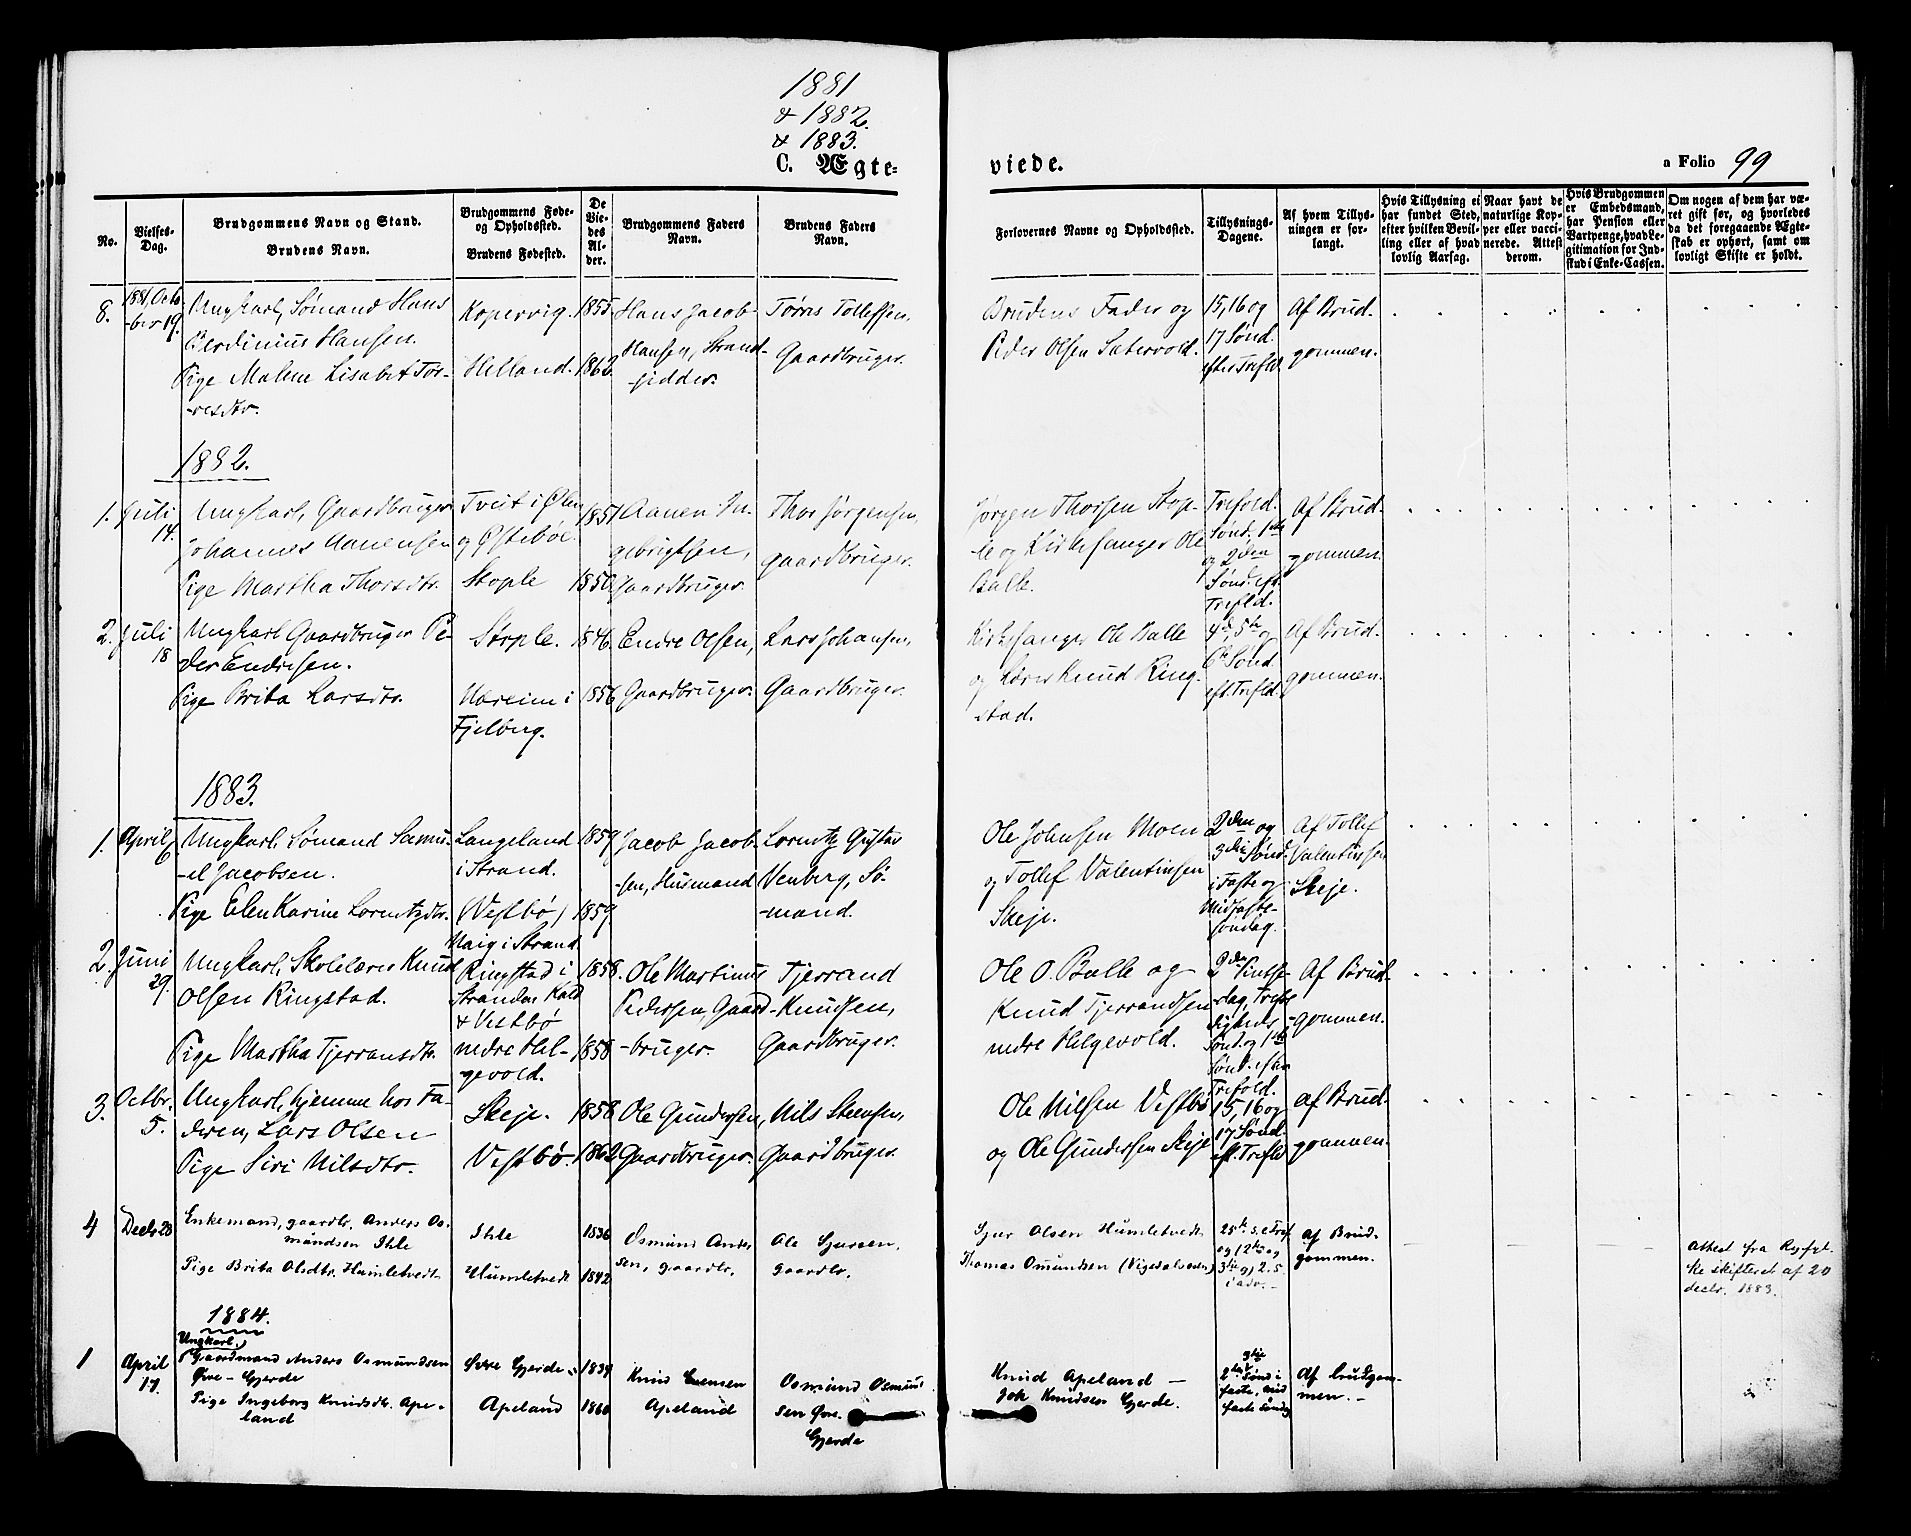 1881
& 1882.
& 1883.
C. Ægte=
viede.
a Folio 99
No.
Vielses-
Dag.
Brudgommens Navn og Stand.
Brudens Navn.
Brudgommens Føde-
og Opholdssted.
Brudens Fødested.
De
Vie-
des
Al-
der.
Brudgommens Faders
Navn.
Brudens Faders
Navn.
Forlovernes Navne og Opholdssted.
Tillysnings-
Dagene.
Af hvem Tillys-
ningen er for-
langt.
Hvis Tillysning ei
har fundet Sted,
efter hvilken Bevil-
ling eller af hvad
lovlig Aarsag.
Naar havt de
naturlige Kop-
per eller vacci-
nerede. Attest
derom.
Hvis Brudgommen
er Embedsmand,
har Pension eller
Vartpenge, hvad Le-
gitimation for Ind-
skud i Enke-Cassen.
Om nogen af dem har væ-
ret gift før, og hvorledes
da det foregaaende Ægte-
skab er ophørt, samt om
lovligt Skifte er holdt.
8.
1881, Octo-
-ber 19.
Ungkarl, Sømand Hans
Berdinius Hansen.
Pige Malene Lisabet Tør-
-resdtr.
Kopervig.
Helland.
1855
1862
Hans Jacob
Hansen, Strand-
-sidder.
Tørres Tollefsen,
Gaardbruger.
Brudens Fader og
Peder Olsen Satervold.
15, 16 og
17 Sønd.
efter Trefld.
Af Brud-
gommen.
1882.
1. Juli
14.
Ungkarl, Gaardbruger
Johannes Aanensen
Pige Martha Thorsdtr.
Tveit i Ølen
og Østebøe.
Stople
1851
1850
Aanen In-
gebrigtsen,
Gaardbruger.
Thor Jørgensen,
gaardbruger.
Jørgen Thorsen Stop-
le og Kirkesanger Ole
Balle.
Trefold.
Sønd. 1ste
og 2den
Sønd. eft.
Trefld.
Af Brud-
gommen.
2. Juli
18
Ungkarl Gaardbruger Pe-
der Endresen.
Pige Brita Larsdtr.
Stople.
Uareim i
Fjelberg.
1846
1856
Endre Olsen,
Gaardbruger.
Lars Johansen,
Gaardbruger.
Kirkesanger Ole Balle
og Lærer Knud Ring-
stad.
4de, 5te og
6te Sønd.
eft. Trefld.
Af Brud-
gommen.
1883.
1. April
6.
Ungkarl, Sømand Samu-
-el Jacobsen.
Pige Elen Karine Lorentzdtr.
Langeland
i Strand.
(Vestbø)
1859
1859
Jacob Jacob-
-sen, Husmand
Lorentz Gustav
Venberg, Sø-
-mand.
Ole Johnsen Moen
og Tollef Valentinsen
Skeje.
2den og
3die Sønd.
i Faste og
Midfaste-
søndag.
Af Tollef
Valentinsen
Skeje.
2. Juni
29.
Ungkarl, Skolelærer Knud
Olsen Ringstad.
Pige Martha Tjerransdtr.
Ringstad i
& Vestbø
nedre Hel-
gevold.
1858.
1858
Ole Martinus
Pedersen, Gaard-
-bruger.
Tjerrand
Knudsen,
Gaardbruger.
Ole O. Balle og
Knud Tjerrandsen
nedre Helgevold.
2den Pintse-
-dag, Trefol-
digheds
Sønd. og 1ste
Sønd. efter
Trefold.
Af Brud-
-gommen.
3. Octbr.
5.
Ungkarl, hjemme hos Fa-
deren, Lars Olsen
Pige Siri Nilsdtr.
Skeje.
Vestbø.
1858
1862
Ole Gundersen,
Gaardbruger.
Nils Steensen,
Gaardbruger.
Ole Nilsen Vestbø
og Ole Gundersen Skeje
15, 16 og
17 Sønd.
eft. Trefld
af Brud-
gommen.
4 Decbr 28
Enkemand, gaardbr. Anders Os-
mundsen Ihle
Pige Brita Olsdtr. Humletvedt
Ihle
Humletvedt
1836
1842
Osmund Ander-
sen, gaardbr.
Ole Sjursen,
gaardbr.
Sjur Olsen Humletvedt
Thomas Omundsen (Vigedalsøren)
25te s. e Tref.
i adv.
af Brud-
gommen.
attest fra Ryfyl-
ke skifteret af 20
decbr. 1883.
1884.
1 April
17.
Ungkarl,
Gaardmand Anders Osmundsen
Øvre-Gjerde
Pige Ingeborg Knudsdtr. Ape-
land
Øvre Gjerde
Apeland
1839
1860
Knud
Apeland
Osmund Osmund
sen Øvre
Gjerde
Knud Apeland —
Joh Knudsen Gjerde.
3die
Sønd i
faste, mid
faste søndag
Af brudgom-
men. -